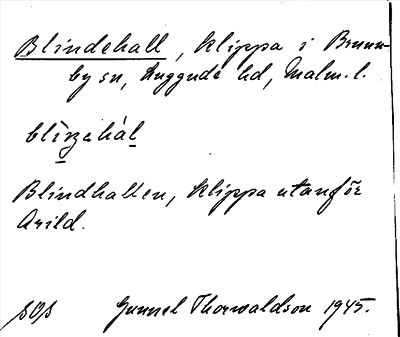 Blindehall, klippa i Brunn-
by sn, Luggude hd, Malm. l.
Blindhallen, klippa utanför
Arild.
SOS Gunnel Thorwaldson 1945.